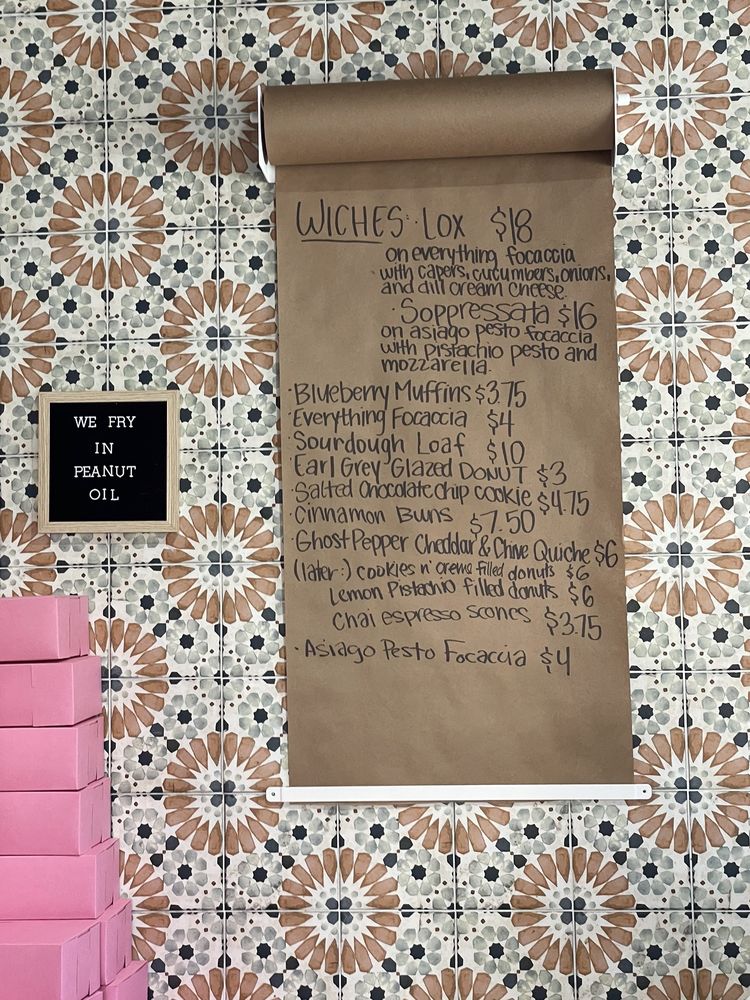 WICHES: · LOX $18
on everything focaccia
with capers, cucumbers, onions,
and dill cream cheese.
· Soppressata $16
on asiago pesto focaccia
with pistachio pesto and
mozzarella.
· Blueberry Muffins $3.75
· Everything Focaccia $4
· Sourdough Loaf $10
· Earl Grey Glazed DONUT $3
· Salted Chocolate Chip cookie $4.75
· Cinnamon Buns $7.50
· Ghost Pepper Cheddar & Chive Quiche $6
(later:) cookies n' creme filled donuts $6
Lemon Pistachio filled donuts $6
Chai espresso scones $3.75
· Asiago Pesto Focaccia $4
WE FRY
IN
PEANUT
OIL